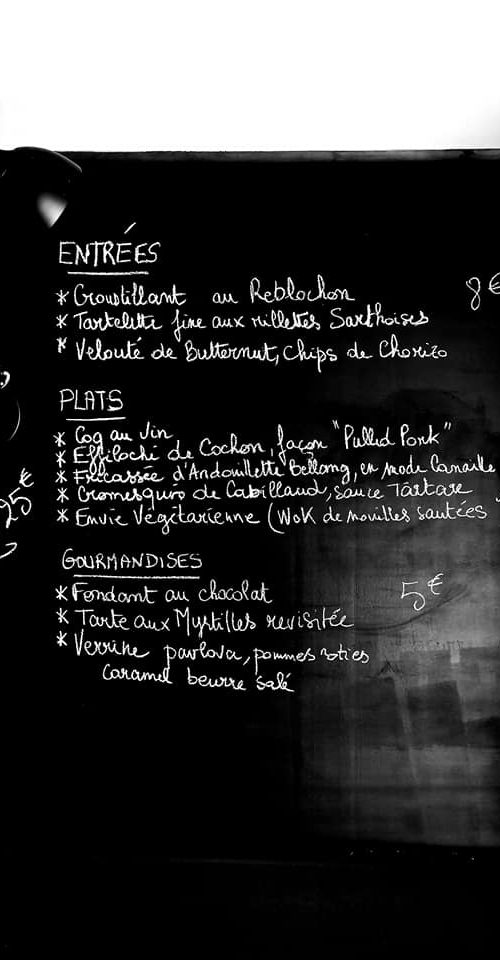 ENTRÉES
* Croustillant au Reblochon 8€
* Tartelette fine aux rillettes Sarthoises
* Velouté de Butternut, chips de Chorizo
PLATS
* Coq au Vin
* Effiloché de Cochon, façon "Pulled Pork"
* Fricassée d'Andouillette Bellang, en mode Canaille
* Cromesquis de Cabillaud, sauce Tartare
25€
* Envie Végétarienne (Wok de nouilles sautées
GOURMANDISES
* Fondant au chocolat 5€
* Tarte aux Myrtilles revisitée
* Verrine pavlova, pommes roties
caramel beurre salé